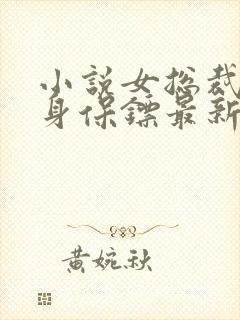 小说女总裁
身保镖最新
黄婉秋